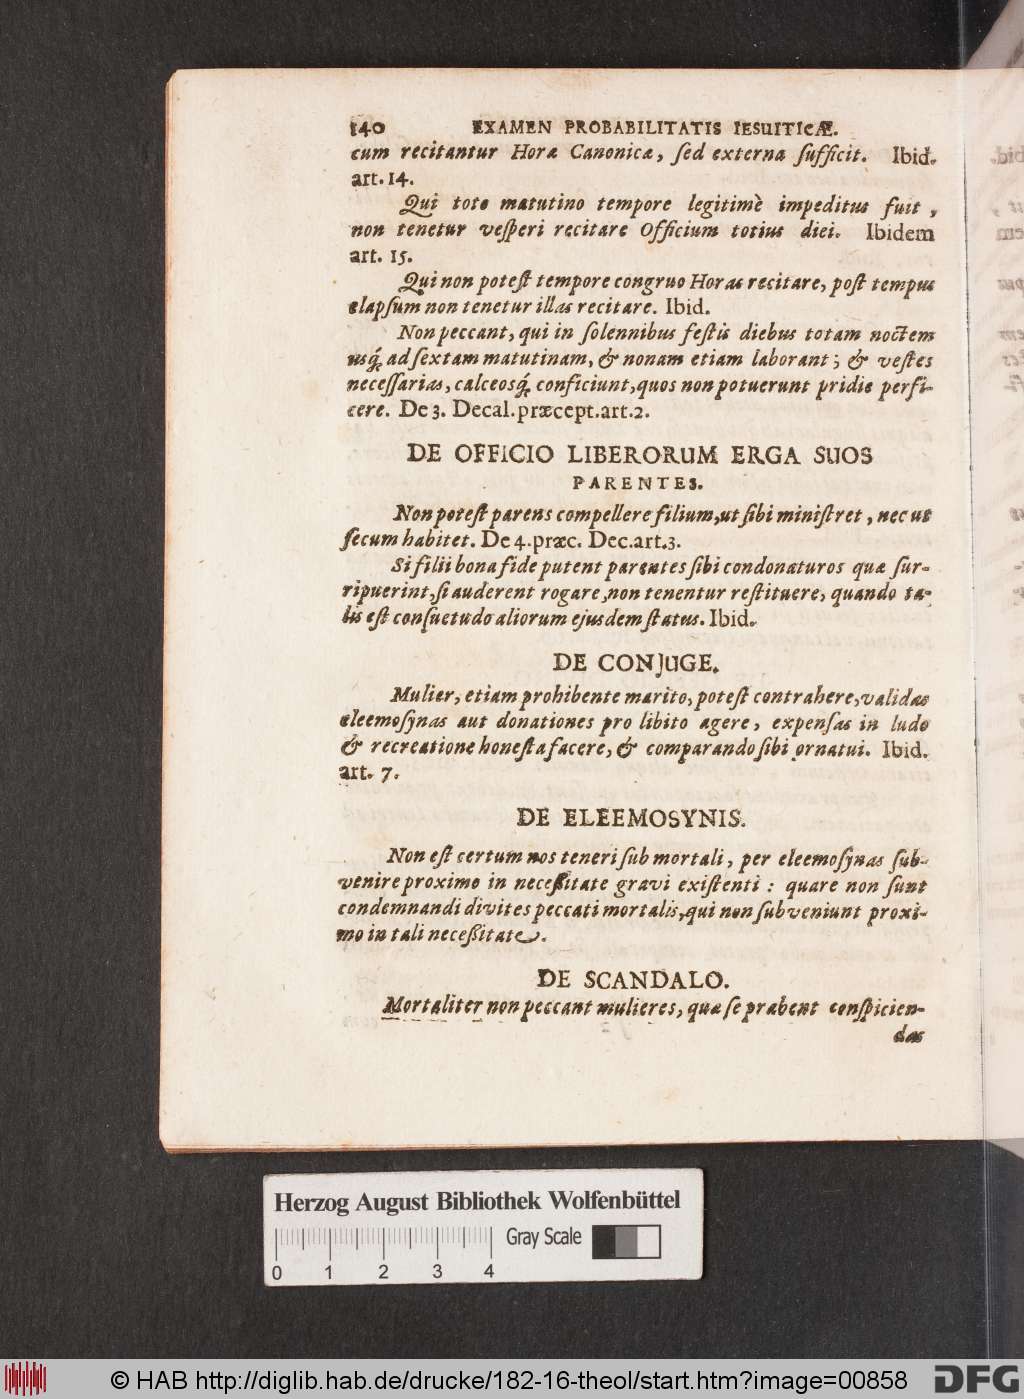 140 EXAMEN PROBABILITATIS IESUITICÆ.
cum recitantur Horæ Canonicæ, ſed externa ſufficit. Ibid.
art. 14.
Qui toto matutino tempore legitimè impeditus fuit,
non tenetur veſperi recitare Officium totius diei. Ibidem
art. 15.
Qui non poteſt tempore congruo Horas recitare, poſt tempus
elapſum non tenetur illas recitare. Ibid.
Non peccant, qui in ſolennibus feſtis diebus totam noctem
usq́; ad ſextam matutinam, & nonam etiam laborant; & veſtes
neceſſarias, calceosq́; conficiunt, quos non potuerunt pridie perfi-
cere. De 3. Decal. præcept. art. 2.
DE OFFICIO LIBERORUM ERGA SUOS
PARENTES.
Non poteſt parens compellere filium, ut ſibi miniſtret, nec ut
ſecum habitet. De 4. præc. Dec. art. 3.
Si filii bona fide putent parentes ſibi condonaturos quæ ſur-
ripuerint, ſi auderent rogare, non tenentur reſtituere, quando ta-
lis eſt conſuetudo aliorum ejusdem ſtatus. Ibid.
DE CONJUGE.
Mulier, etiam prohibente marito, poteſt contrahere, validas
eleemoſynas aut donationes pro libito agere, expenſas in ludo
& recreatione honeſta facere, & comparando ſibi ornatui. Ibid.
art. 7.
DE ELEEMOSYNIS.
Non eſt certum nos teneri ſub mortali, per eleemoſynas ſub-
venire proximo in neceßitate gravi exiſtenti: quare non ſunt
condemnandi divites peccati mortalis, qui non ſubveniunt proxi-
mo in tali neceßitate.
DE SCANDALO.
Mortaliter non peccant mulieres, quæ ſe præbent conſpicien-
das
Herzog August Bibliothek Wolfenbüttel
Gray Scale
0 1 2 3 4
© HAB http://diglib.hab.de/drucke/182-16-theol/start.htm?image=00858
DFG